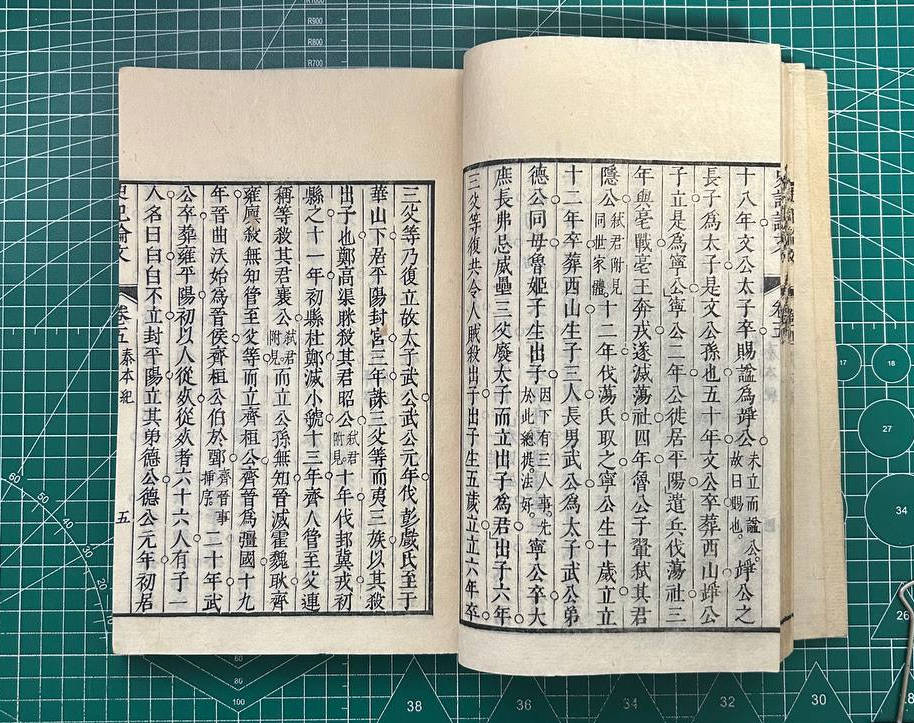 十八年文公太子卒賜諡為竫公未立而諡公故曰賜也竫公之
長子為太子是文公孫也五十年文公卒葬西山竫公
子立是為寧公寧公二年公徙居平陽遣兵伐蕩社三
年與亳戰亳王奔戎遂滅蕩社四年魯公子翬弒其君
隱公弒君附見同世家體十二年伐蕩氏取之寧公生十歲立立
十二年卒葬西山生子三人長男武公為太子武公弟
德公同母魯姬子生出子因下有三人事先於此總提法好寧公卒大
庶長弗忌威壘三父廢太子而立出子為君出子六年
三父等復共令人賊殺出子出子生五歲立立六年卒
三父等乃復立故太子武公武公元年伐彭戲氏至于
華山下居平陽封宮三年誅三父等而夷三族以其殺
出子也鄭高渠眯殺其君昭公弒君附見十年伐邽冀戎初
縣之十一年初縣杜鄭滅小虢十三年齊人管至父連
稱等殺其君襄公弒君附見而立公孫無知晉滅霍魏耿齊
雍廩殺無知管至父等而立齊桓公齊晉為彊國十九
年晉曲沃始為晉侯齊桓公伯於鄄齊晉事插序二十年武
公卒葬雍平陽初以人從死從死者六十六人有子一
人名曰白白不立封平陽立其弟德公德公元年初居
史記論文
卷五
秦本紀
五
38
36
34
32
30